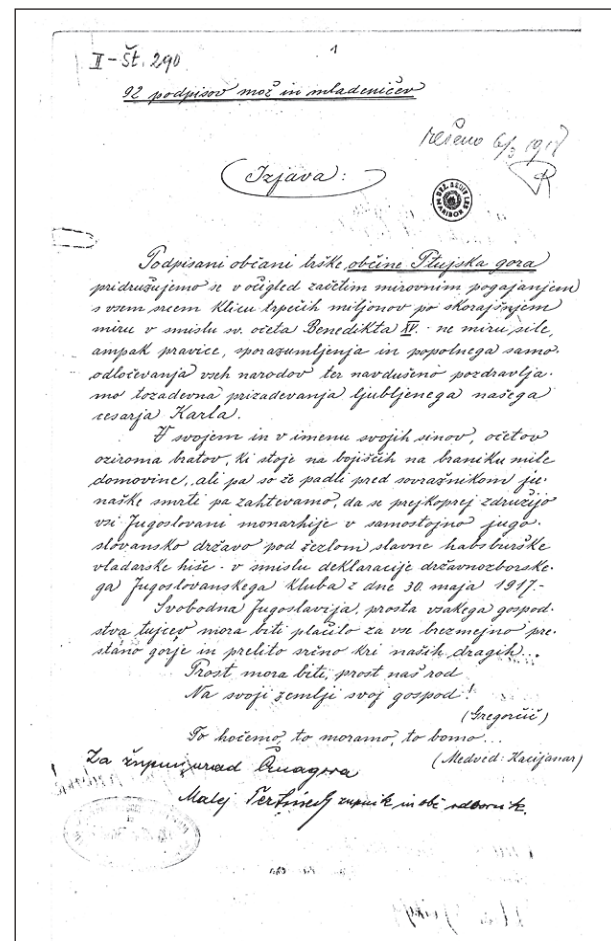 II - Št. 290
1
92 podpisov mož in mladeničev
rešeno 6/3 1918
Izjava:
Podpisani občani trške občine Ptujska gora
pridružujemo se v očigled začetim mirovnim pogajanjem
s vsem srcem klicu trpečih miljonov po skorajšnjem
miru v smislu sv. očeta Benedikta XV. - ne miru sile,
ampak pravice, sporazumljenja in popolnega samo-
odločevanja vseh narodov ter navdušeno pozdravlja-
mo tozadevna prizadevanja ljubljenega našega
cesarja Karla.
V svojem in v imenu svojih sinov, očetov
oziroma bratov, ki stoje na bojiščih na braniku mile
domovine, ali pa so že padli pred sovražnikom ju-
naške smrti pa zahtevamo, da se prejkoprej združijo
vsi Jugoslovani monarhije v samostojno jugo-
slovansko državo pod žezlom slavne habsburške
vladarske hiše - v smislu deklaracije državnozborske-
ga Jugoslovanskega kluba z dne 30. maja 1917.-
Svobodna Jugoslavija, prosta vsakega gospod-
stva tujcev mora biti plačilo za vse brezmejno pre-
stano gorje in prelito srčno kri naših dragih...
Prost mora biti, prost naš rod
Na svoji zemlji svoj gospod!
(Gregorčič)
To hočemo, to moramo, to bomo...
(Medved: Kacijanar)
Za župni urad Črnagora
Matej župnik in obč odbornik.